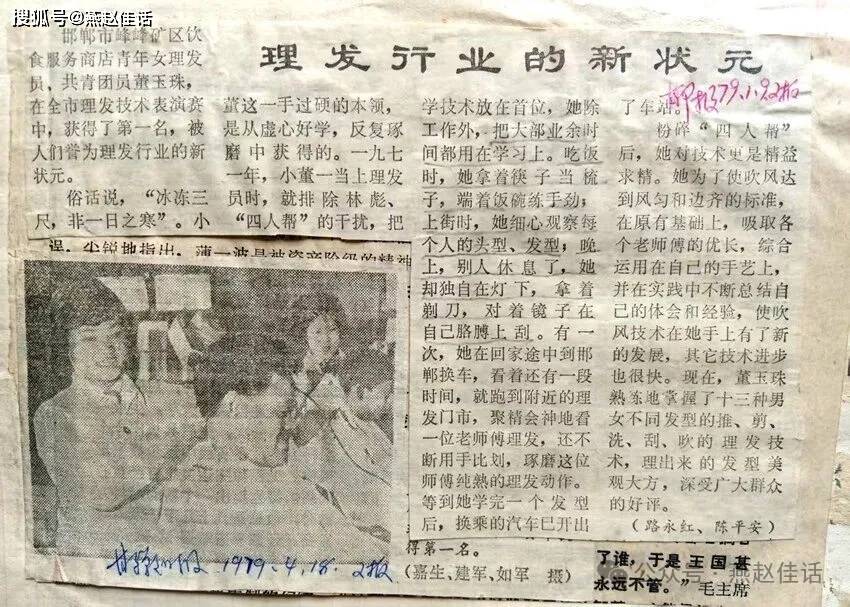 搜狐号@燕赵佳话
理发行业的新状元
邯郸市峰峰矿区饮
食服务商店青年女理发
员、共青团员董玉珠,
在全市理发技术表演赛
中,获得了第一名,被
人们誉为理发行业的新
状元。
俗话说,“冰冻三
尺,非一日之寒”。小
董这一手过硬的本领,
是从虚心好学,反复琢
磨中获得的。一九七
一年,小董一当上理发
员时,就排除林彪、
“四人帮”的干扰,把
学技术放在首位,她除
工作外,把大部业余时
间都用在学习上。吃饭
时,她拿着筷子当梳
子,端着饭碗练手劲;
上街时,她细心观察每
个人的头型、发型;晚
上,别人休息了,她
却独自在灯下,拿着
剃刀,对着镜子在
自己胳膊上刮。有一
次,她在回家途中到邯
郸换车,看着还有一段
时间,就跑到附近的理
发门市,聚精会神地看
一位老师傅理发,还不
断用手比划,琢磨这位
师傅纯熟的理发动作。
等到她学完一个发型
后,换乘的汽车已开出
了车站。
79.1.9.2版
粉碎“四人帮”
后,她对技术更是精益
求精。她为了使吹风达
到风匀和边齐的标准,
在原有基础上,吸取各
个老师傅的优长,综合
运用在自己的手艺上,
并在实践中不断总结自
己的体会和经验,使吹
风技术在她手上有了新
的发展,其它技术进步
也很快。现在,董玉珠
熟练地掌握了十三种男
女不同发型的推、剪、
洗、刮、吹的理发技
术,理出来的发型美
观大方,深受广大群众
的好评。
(路永红、陈平安)
误,尖锐地指出,薄一波是被资产阶级的精神
1979.4.18.2版
得第一名。
(嘉生、建军、如军 摄)
了谁,于是王国甚
永远不管。”毛主席
公众号·燕赵佳话